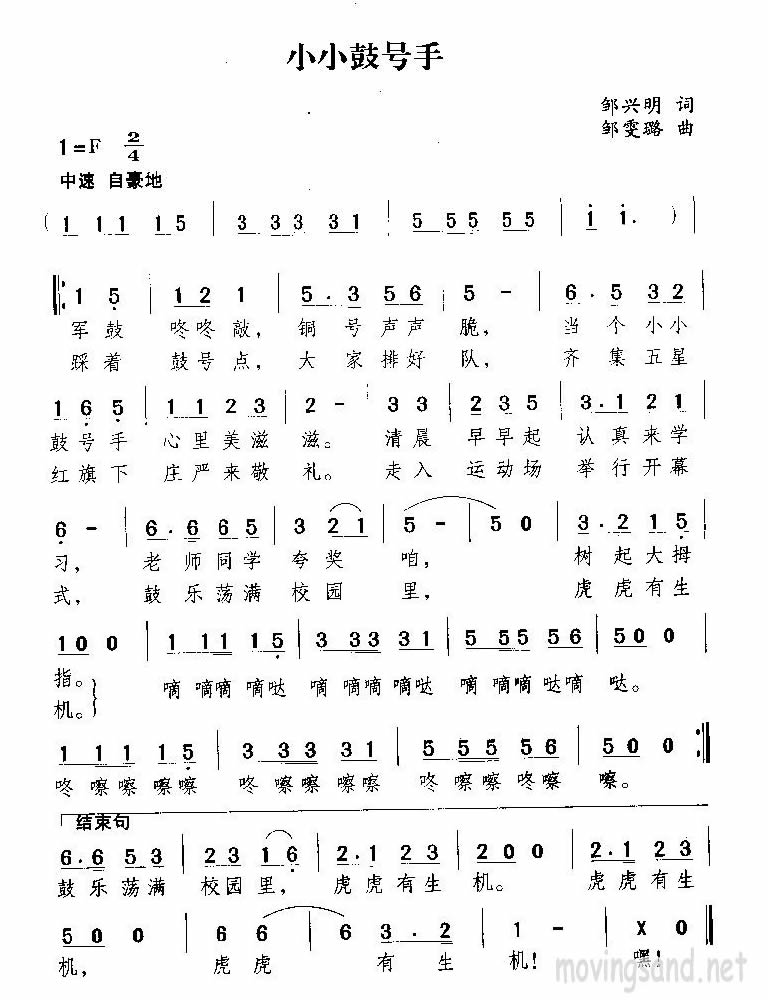 小小鼓号手
邹兴明 词
邹雯璐 曲
1=F 2/4
中速 自豪地
( 1 1 1 1 5 | 3 3 3 3 1 | 5 5 5 5 5 | i i. )
‖: 1 5 | 1 2 1 | 5 . 3 5 6 | 5 - | 6 . 5 3 2 |
军鼓 咚咚敲, 铜号声声 脆, 当个小小
踩着 鼓号点, 大家排好 队, 齐集五星
1 6 5 | 1 1 2 3 | 2 - | 3 3 | 2 3 5 | 3 . 1 2 1 |
鼓号手 心里美滋 滋。 清晨 早早起 认真来学
红旗下 庄严来敬 礼。 走入 运动场 举行开幕
6 - | 6 . 6 6 5 | 3 2 1 | 5 - | 5 0 | 3 . 2 1 5 |
习, 老师同学 夸奖 咱, 树起大拇
式, 鼓乐荡满 校园 里, 虎虎有生
1 0 0 | 1 1 1 1 5 | 3 3 3 3 1 | 5 5 5 5 6 | 5 0 0 |
指。 嘀 嘀嘀 嘀哒 嘀 嘀嘀 嘀哒 嘀 嘀嘀哒嘀 哒。
机。
1 1 1 1 5 | 3 3 3 3 1 | 5 5 5 5 6 | 5 0 0 :‖
咚 嚓嚓嚓嚓 咚 嚓嚓嚓嚓 咚 嚓嚓咚嚓 嚓。
结束句
6 . 6 5 3 | 2 3 1 6 | 2 . 1 2 3 | 2 0 0 | 2 . 1 2 3 |
鼓乐荡满 校园里, 虎虎有生 机。 虎虎有生
5 0 0 | 6 6 | 6 3 . 2 | 1 - | X 0 ‖
机, 虎虎 有生 机! 嘿!
movingsand.net